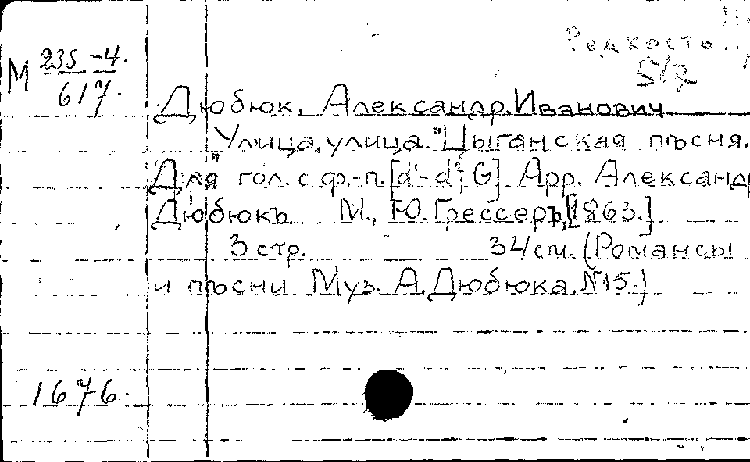 Редкость
М 235-4.
617.
5/2
Дюбюк, Александр Иванович
"Улица, улица." Цыганская пѣсня.
Для гол. с ф.-п. [d¹-d²; G]. Арр. Александ
Дюбюкъ М., Ю. Грессеръ, [1863.]
3 стр. 34 см. (Романсы
и пѣсни Муз. А. Дюбюка, №15.)
1676.